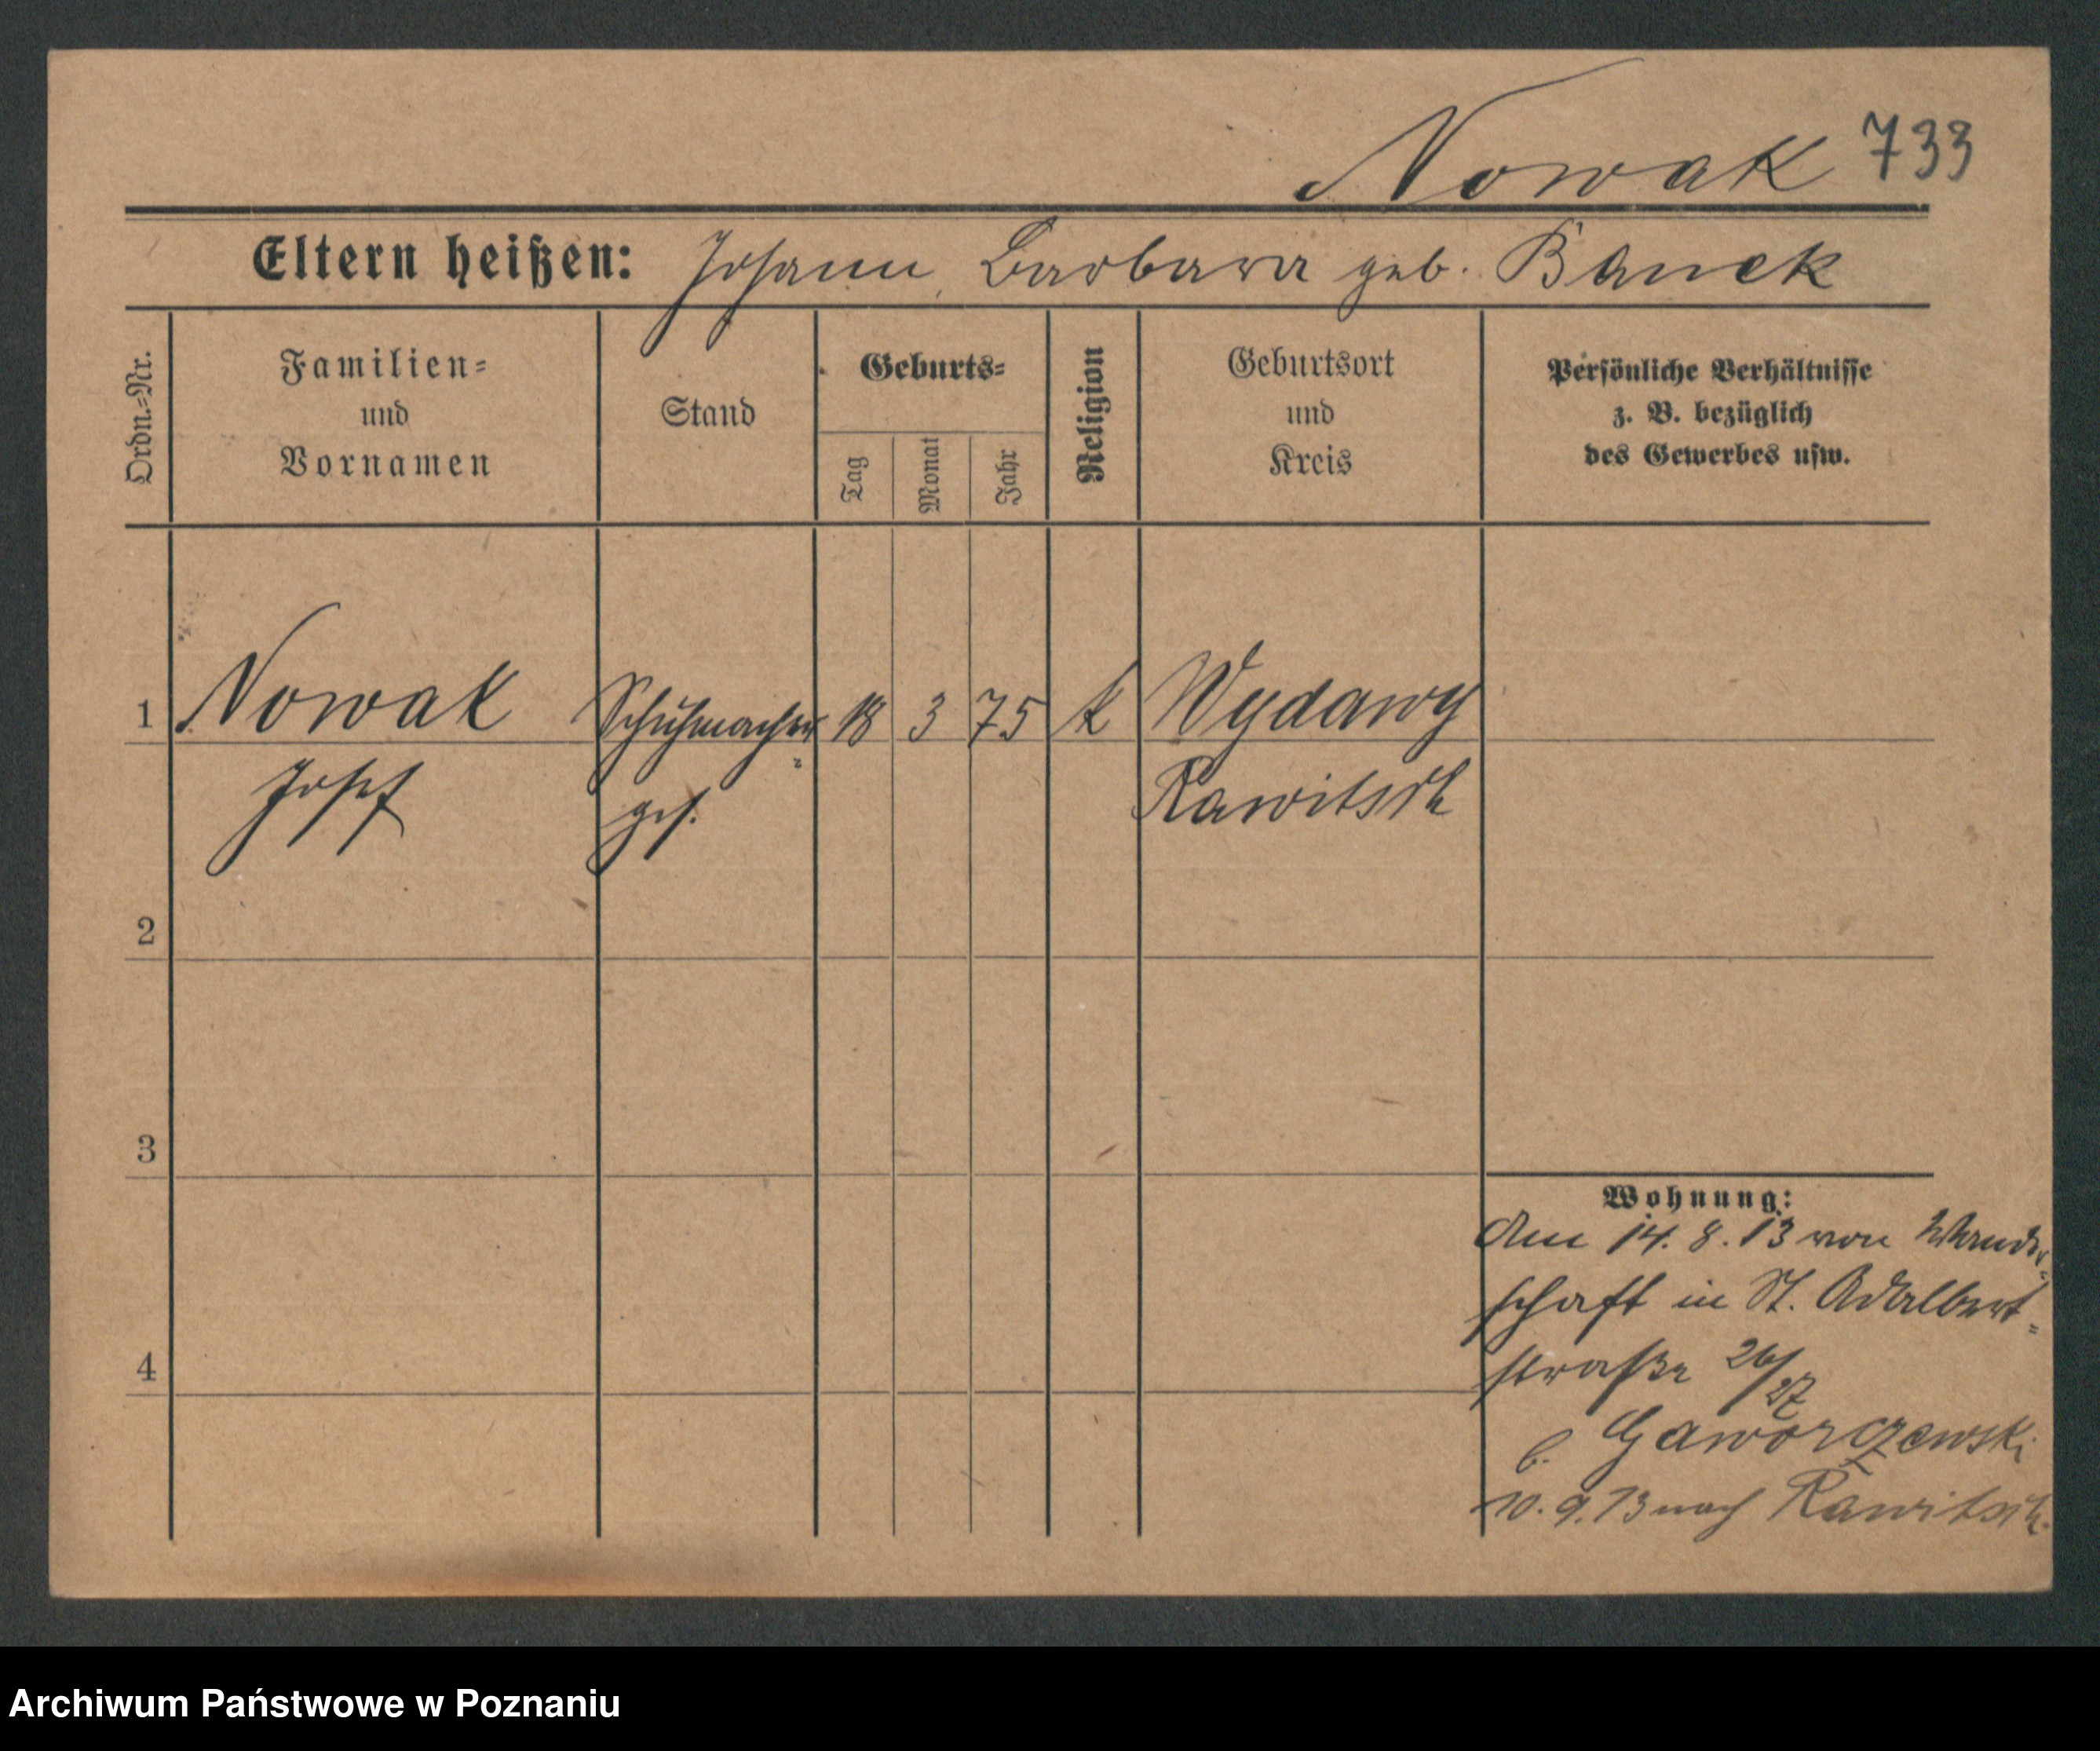 Nowak 733
Eltern heißen: Johann, Barbara geb. Banek
Ordn.-Nr.
Familien-
und
Vornamen
Stand
Geburts-
Tag
Monat
Jahr
Religion
Geburtsort
und
Kreis
Persönliche Verhältnisse
z. B. bezüglich
des Gewerbes usw.
1 Nowak Schuhmacher- 18 3 75 k Wydawy
Josef ges. Rawitsch
2
3
4
Wohnung:
Am 14. 8. 13 von Wander-
schaft in St. Adalbert-
straße 26/27
b. Gaworczewski
10. 9. 13 nach Rawitsch.
Archiwum Państwowe w Poznaniu